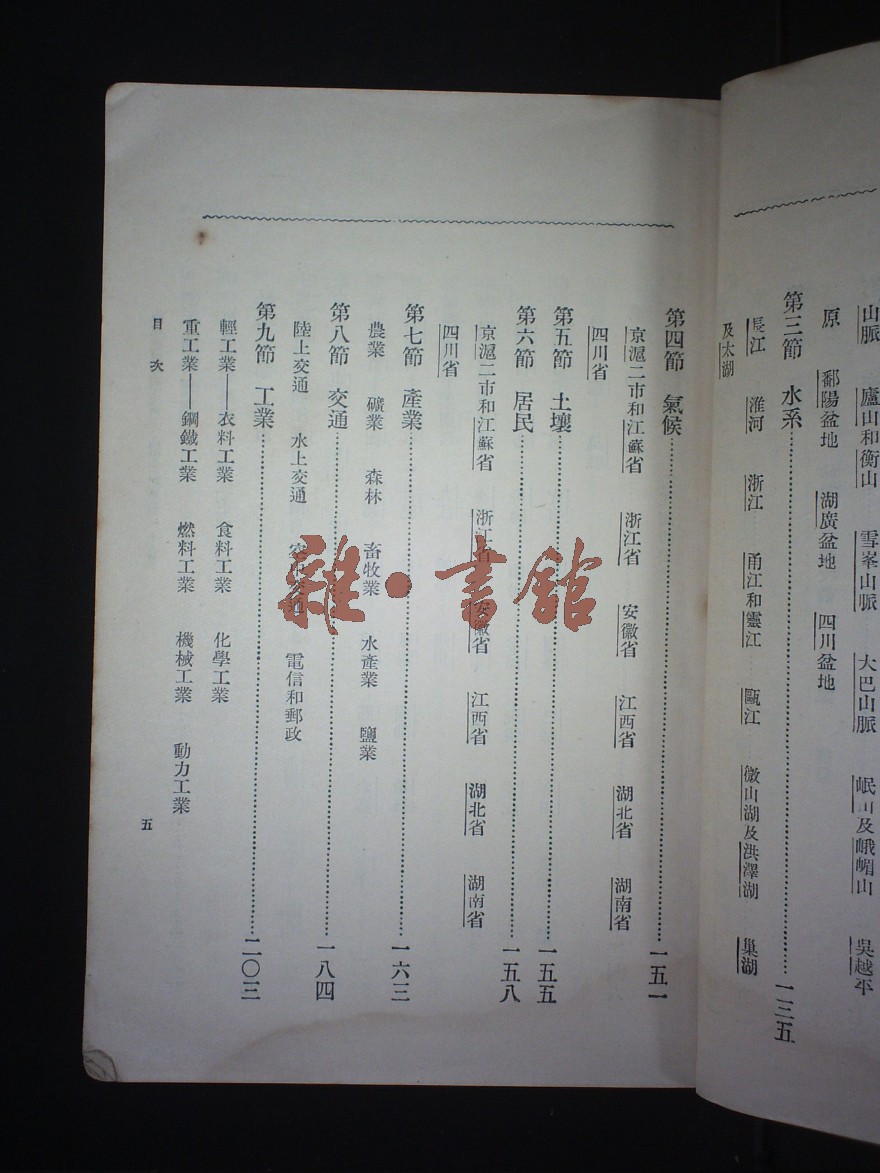 山脈　廬山和衡山　雪峯山脈　大巴山脈　岷山及峨嵋山　吳越平
原　鄱陽盆地　湖廣盆地　四川盆地
第三節　水系……一三五
長江　淮河　浙江　甬江和靈江　甌江　微山湖及洪澤湖　巢湖
及太湖
第四節　氣候……一五一
京滬二市和江蘇省　浙江省　安徽省　江西省　湖北省　湖南省
四川省
第五節　土壤……一五五
第六節　居民……一五八
京滬二市和江蘇省　浙江省　安徽省　江西省　湖北省　湖南省
四川省
第七節　產業……一六三
農業　礦業　森林　畜牧業　水產業　鹽業
第八節　交通……一八四
陸上交通　水上交通　空中交通　電信和郵政
第九節　工業……二〇三
輕工業——衣料工業　食料工業　化學工業
重工業——鋼鐵工業　燃料工業　機械工業　動力工業
目次　五
雜·書館